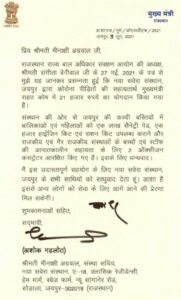 मुख्य मंत्री
राजस्थान
जयपुर, 3 जून, 2021
प्रिय श्रीमती मीनाक्षी अग्रवाल जी,
राजस्थान राज्य बाल अधिकार संरक्षण आयोग की अध्यक्ष,
श्रीमती संगीता बेनीवाल जी के 27 मई, 2021 के पत्र से
मुझे यह जानकर प्रसन्नता हुई कि नया सवेरा संस्थान,
जयपुर द्वारा कोरोना पीड़ितों की सहायतार्थ मुख्यमंत्री
राहत कोष में 21 हजार रुपये का योगदान किया गया है।
संस्थान की ओर से जयपुर की कच्ची बस्तियों में
बालिकाओं एवं महिलाओं को एक लाख सैनेट्री पैड, एक
हजार हाईजिन किट एवं राशन किट उपलब्ध कराने और
राजकीय एवं गैर राजकीय संस्थाओं के बच्चों एवं स्टॉफ
की आपातकालीन सहायता के लिए 7 ऑक्सीजन
कंसंट्रेटर आरक्षित किए गए हैं। इसके लिए धन्यवाद।
मैं इस उदारतापूर्ण सहयोग के लिए नया सवेरा संस्थान,
जयपुर के सभी साथियों को साधुवाद देता हूं। आशा है
इससे अन्य लोगों को सेवा के लिए आगे आने की प्रेरणा
मिल सकेगी।
शुभकामनाओं सहित,
सद्भावी,
(अशोक गहलोत)
श्रीमती मीनाक्षी अग्रवाल, संस्था सचिव,
नया सवेरा संस्थान, ए-18, क्लासिक रेजीडेन्सी,
हेम मार्ग, स्वेज फार्म, न्यू सांगानेर रोड,
सोडाला, जयपुर-302019 (राजस्थान)